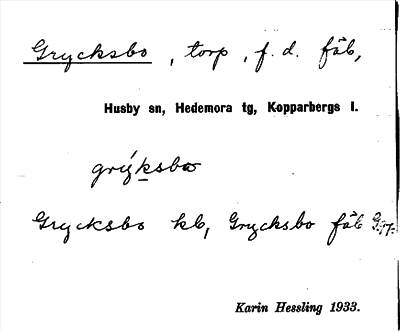 Grycksbo, torp, f. d. fäb,
Husby sn, Hedemora tg, Kopparbergs l.
grýksbo
Grycksbo kb, Grycksbo fäb
Karin Hessling 1933.